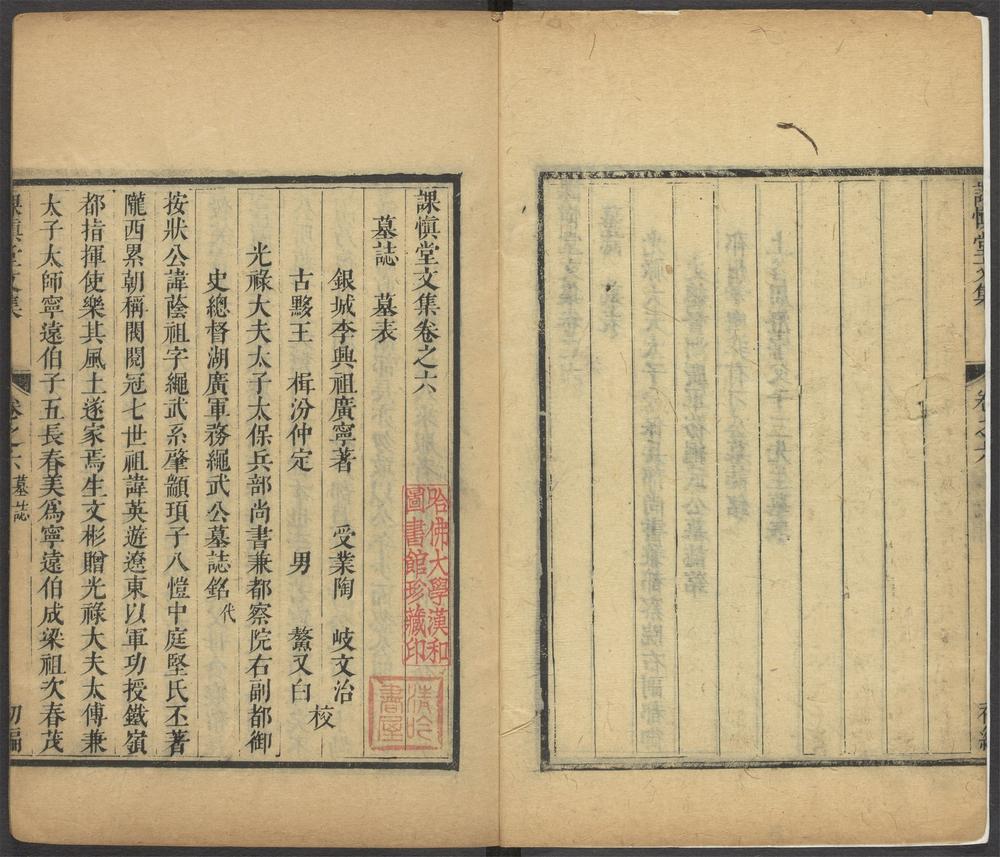 課慎堂文集
卷之六
初編
課慎堂文集卷之六
墓誌　墓表
銀城李興祖廣寧著　受業陶　岐文治
古黟王　楫汾仲定　男　鰲又白　校
光祿大夫太子太保兵部尚書兼都察院右副都御
史總督湖廣軍務繩武公墓誌銘代
按狀公諱蔭祖字繩武系肇顓頊子八愷中庭堅氏丕著
隴西累朝稱閥閱冠七世祖諱英遊遼東以軍功授鐵嶺
都指揮使樂其風土遂家焉生文彬贈光祿大夫太傅兼
太子太師寧遠伯子五長春美爲寧遠伯成梁祖次春茂
課慎堂文集
卷之六墓誌
初編
哈佛大學漢和
圖書館珍藏印
清吟
書屋